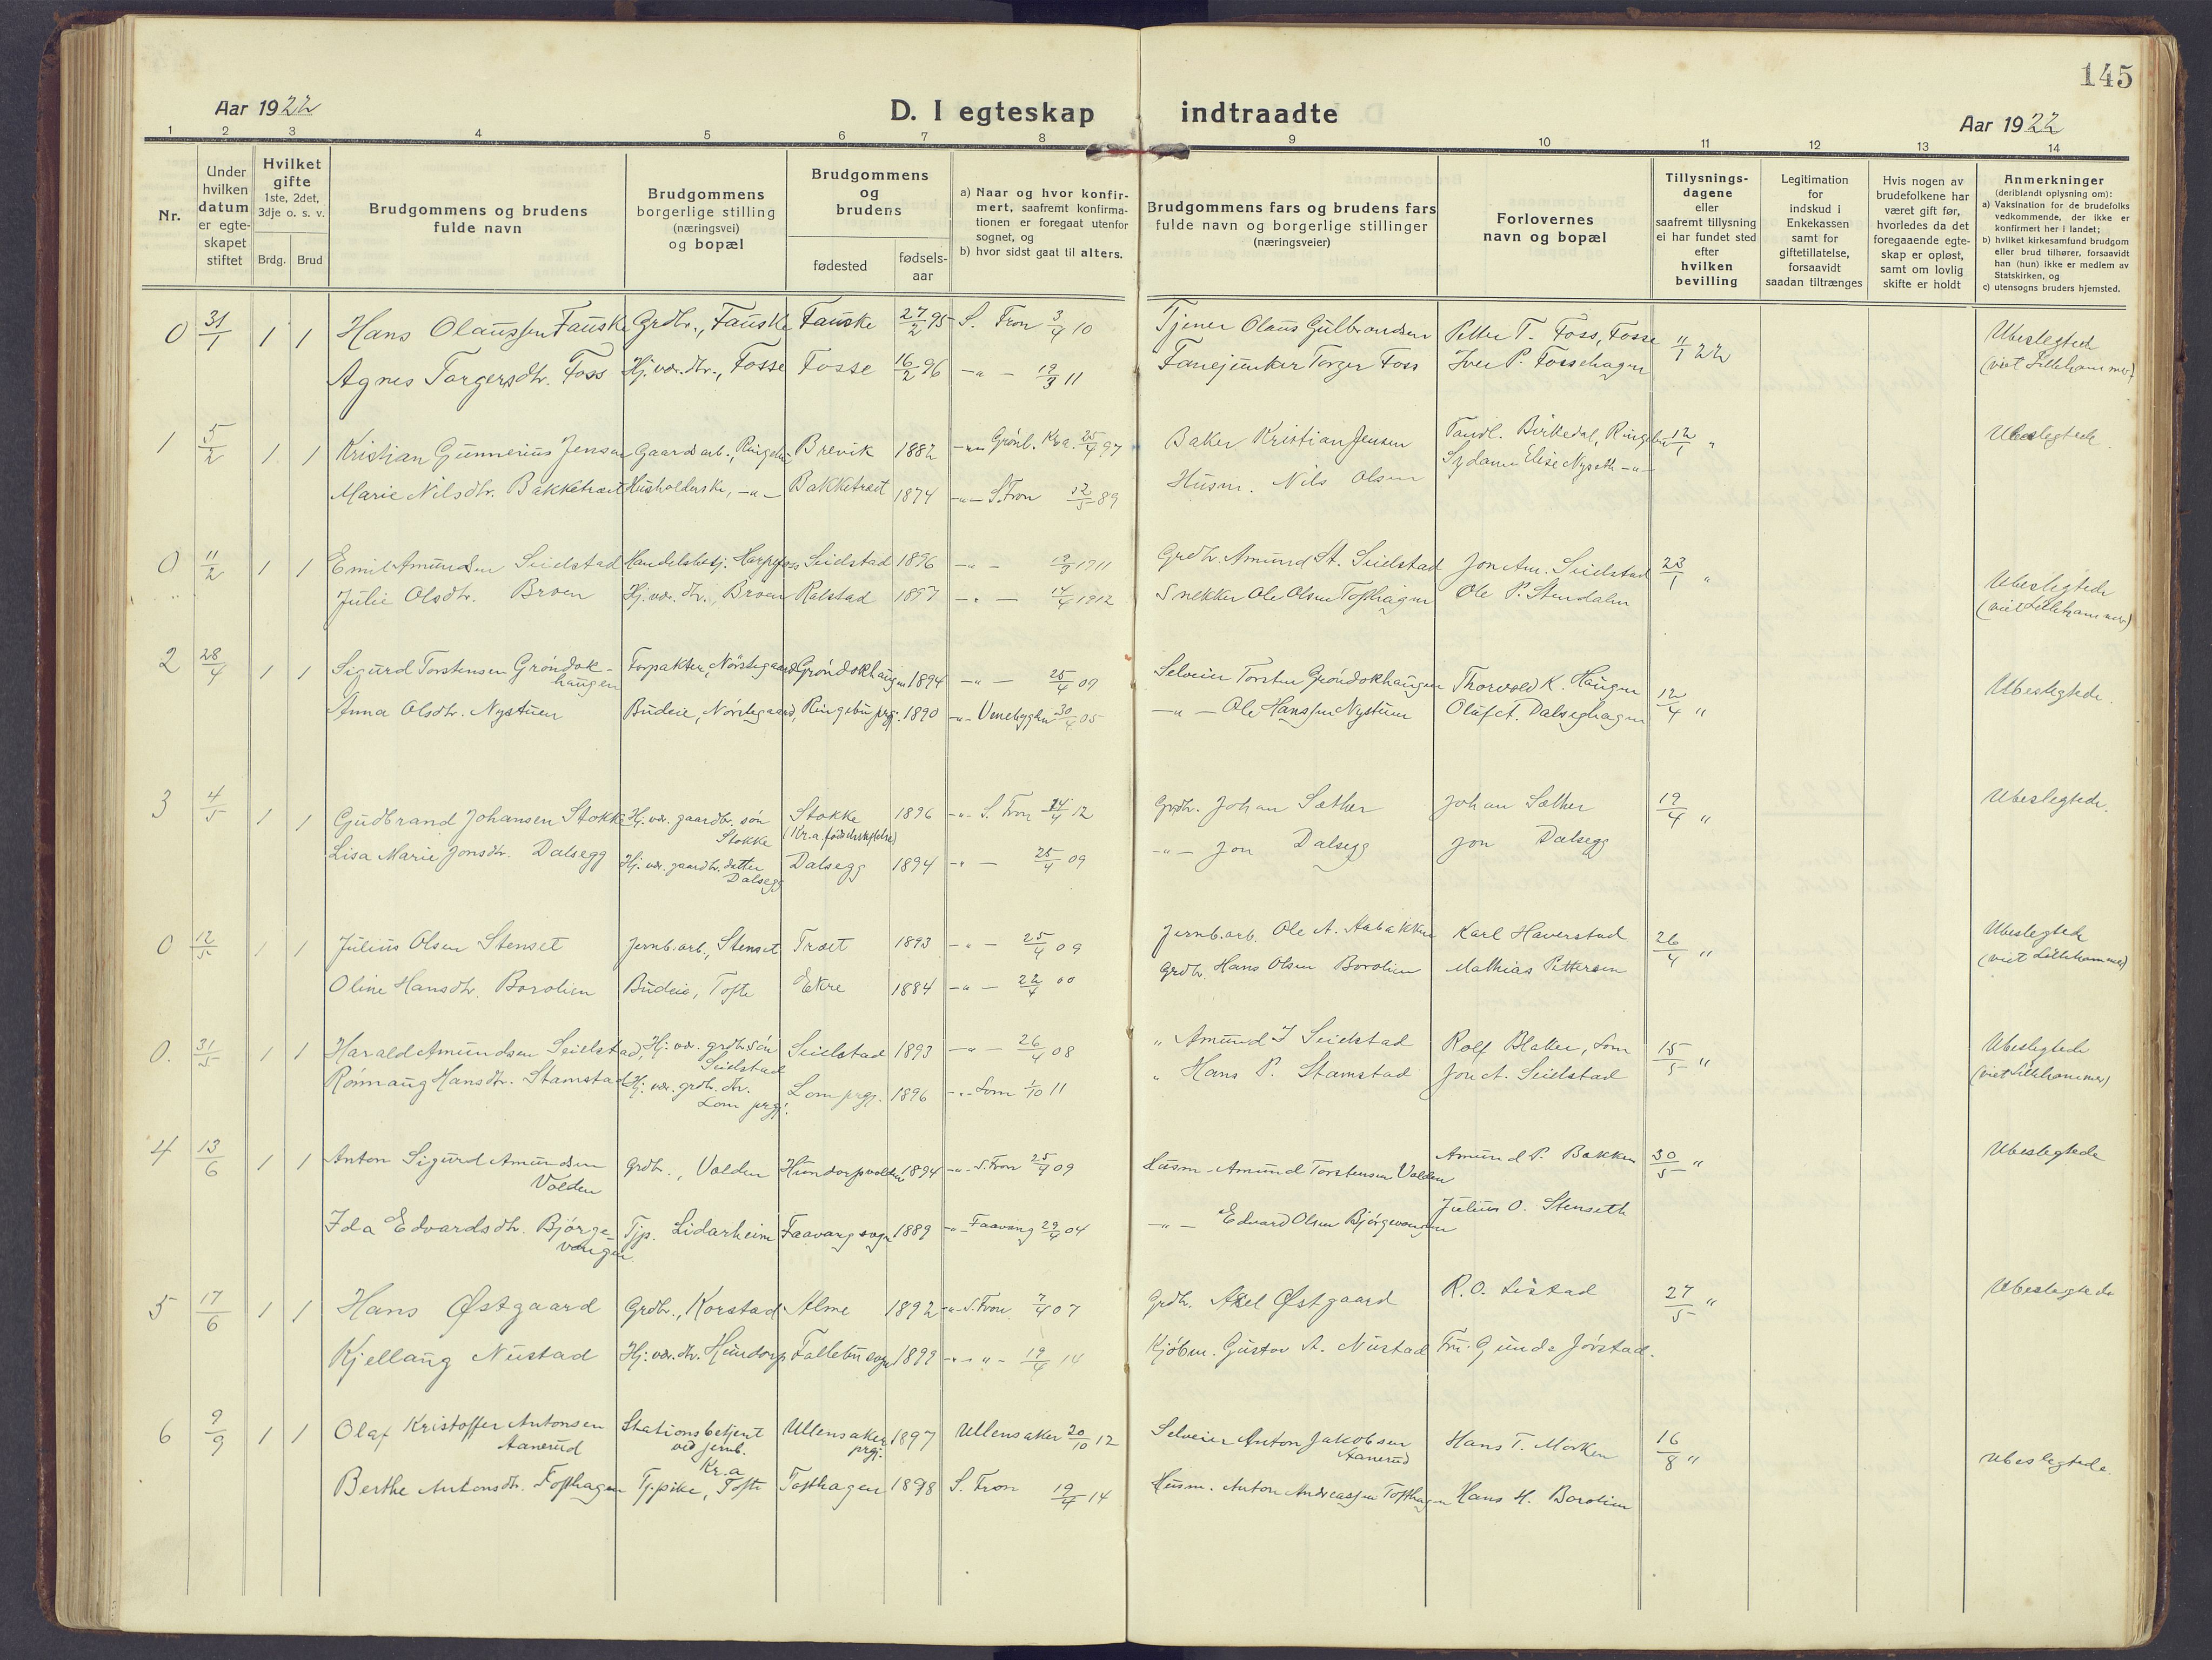 145
Aar 1922
D. I egteskap indtraadte
Aar 1922
1 2 3 4 5 6 7 8 9 10 11 12 13 14
Nr.
Under hvilken datum er egte-skapet stiftet
Hvilket gifte 1ste, 2det, 3dje o. s. v.
Brdg. Brud
Brudgommens og brudens fulde navn
Brudgommens borgerlige stilling (næringsvei) og bopæl
Brudgommens og brudens
fødested
fødsels-aar
a) Naar og hvor konfir-mert, saafremt konfirma-tionen er foregaat utenfor sognet, og
b) hvor sidst gaat til alters.
Brudgommens fars og brudens fars fulde navn og borgerlige stillinger (næringsveier)
Forlovernes navn og bopæl
Tillysnings-dagene eller saafremt tillysning ei har fundet sted efter hvilken bevilling
Legitimation for indskud i Enkekassen samt for giftetillatelse, forsaavidt saadan tiltrænges
Hvis nogen av brudefolkene har været gift før, hvorledes da det foregaaende egte-skap er opløst, samt om lovlig skifte er holdt
Anmerkninger (deriblandt oplysning om):
a) Vaksination for de brudefolks vedkommende, der ikke er konfirmert her i landet;
b) hvilket kirkesamfund brudgom eller brud tilhører, forsaavidt han (hun) ikke er medlem av Statskirken, og
c) utensogns bruders hjemsted.
0 31/1 1 1 Hans Olaussen Fauske Grdbr., Fauske Fauske 27/2 95 S. Fron 3/4 10 Tjener Olaus Gulbrandsen Petter T. Foss, Fosse 11/1 22 Ubeslegtede
Agnes Torgersdtr. Foss Hj. vær. dtr., Fosse Fosse 16/2 96 -"- 19/3 11 Fanejunker Torger Foss Iver P. Fossehagen (viet Lillehammer)
1 5/2 1 1 Kristian Gunnerius Jensen Gaardsarb., Ringebu Brevik 1882 -"- Grønl. Kra. 25/4 97 Baker Kristian Jensen Tandl. Birkedal, Ringebu 12/1 " Ubeslegtede.
Marie Nilsdtr. Bakketræet Husholderske, -"- Bakketræet 1874 -"- S. Fron 12/5 89 Husm. Nils Olsen Sydame Elise Nyseth -"-
0 11/2 1 1 Emil Amundsen Seielstad Handelsbetj. Harpefoss Seielstad 1896 -"- 19/3 1911 Grdbr. Amund St. Seielstad Jon Am. Seielstad 23/1 " Ubeslegtede
Julie Olsdtr. Broen Hj. vær. dtr., Broen Rolstad 1897 -"- 14/4 1912 Snekker Ole Olsen Tofthagen Ole P. Stendalen (viet Lillehammer)
2 28/4 1 1 Sigurd Torstensen Grøndok-haugen Forpakter, Nørstegaard Grøndokhaugen 1894 -"- 25/4 09 Selveier Torsten Grøndokhaugen Thorvald K. Haugen 12/4 " Ubeslegtede.
Anna Olsdtr. Nystuen Budeie, Nørstegaard, Ringebu prgj. 1890 -"- Venebygden 30/4 05 -"- Ole Hanssen Nystuen Olaf A. Dalseghagen
3 4/5 1 1 Gudbrand Johansen Stokke Hj. vær. gaardbr. søn Stokke Stokke (Kr.a. fødselsstiftelse) 1896 -"- S. Fron 14/4 12 Grdbr. Johan Sæther Johan Sæther 19/4 " Ubeslegtede.
Lisa Marie Jonsdtr. Dalsegg Hj. vær. gaardbr. datter Dalsegg Dalsegg 1894 -"- 25/4 09 -"- Jon Dalsegg Jon Dalsegg
0 12/5 1 1 Julius Olsen Stenset Jernb.arb., Stenset Træet 1893 -"- 25/4 09 Jernb.arb. Ole A. Aabakken Karl Haverstad 26/4 " Ubeslegtede
Oline Hansdtr. Borolien Budeie, Tofte Ekre 1884 -"- 22/4 00 Grdbr. Hans Olsen Borolien Mathias Pettersen (viet Lillehammer)
0. 31/5 1 1 Harald Amundsen Seielstad, Hj. vær. grdbr. søn Seielstad Seielstad 1893 -"- 26/4 08 " Amund I Seielstad Rolf Blaker, Lom 15/5 " Ubeslegtede
Rønnaug Hansdtr. Stamstad Hj. vær. grdbr. dtr. Lom prgj. Lom prgj. 1896 -"- Lom 1/10 11 " Hans P. Stamstad Jon A. Seielstad (viet Lillehammer)
4 13/6 1 1 Anton Sigurd Amundsen Volden Grdbr., Volden Hundorpvolden 1894 -"- S. Fron 25/4 09 Husm. Amund Torstensen Volden Amund P. Bakken 30/5 " Ubeslegtede
Ida Edvardsdtr. Bjørge-vangen Tjp. Lidarheim Faavang sogn 1889 -"- Faavang 29/4 04 -"- Edvard Olsen Bjørgevangen Julius O. Stenseth
5 17/6 1 1 Hans Østgaard Grdbr., Korstad Alme 1892 -"- S. Fron 7/4 07 Grdbr. Axel Østgaard R.O. Listad 27/5 " Ubeslegtede
Kjellaug Nustad Hj. vær. dtr. Hundorp Follebu sogn 1899 -"- "- 19/4 14 Kjøbm. Gustav A. Nustad Fru Gunda Jørstad.
6 9/9 1 1 Olaf Kristoffer Antonsen Aanerud Stationsbetjent ved jernb. Kr.a Ullensaker prgj. 1897 Ullensaker 20/10 12 Selveier Anton Jakobsen Aanerud Hans T. Morken 16/8 " Ubeslegtede.
Berthe Antonsdtr. Tofthagen Tj.pike, Tofte Tofthagen 1898 S. Fron 19/4 14 Husm. Anton Andreassen Tofthagen Hans H. Borolien